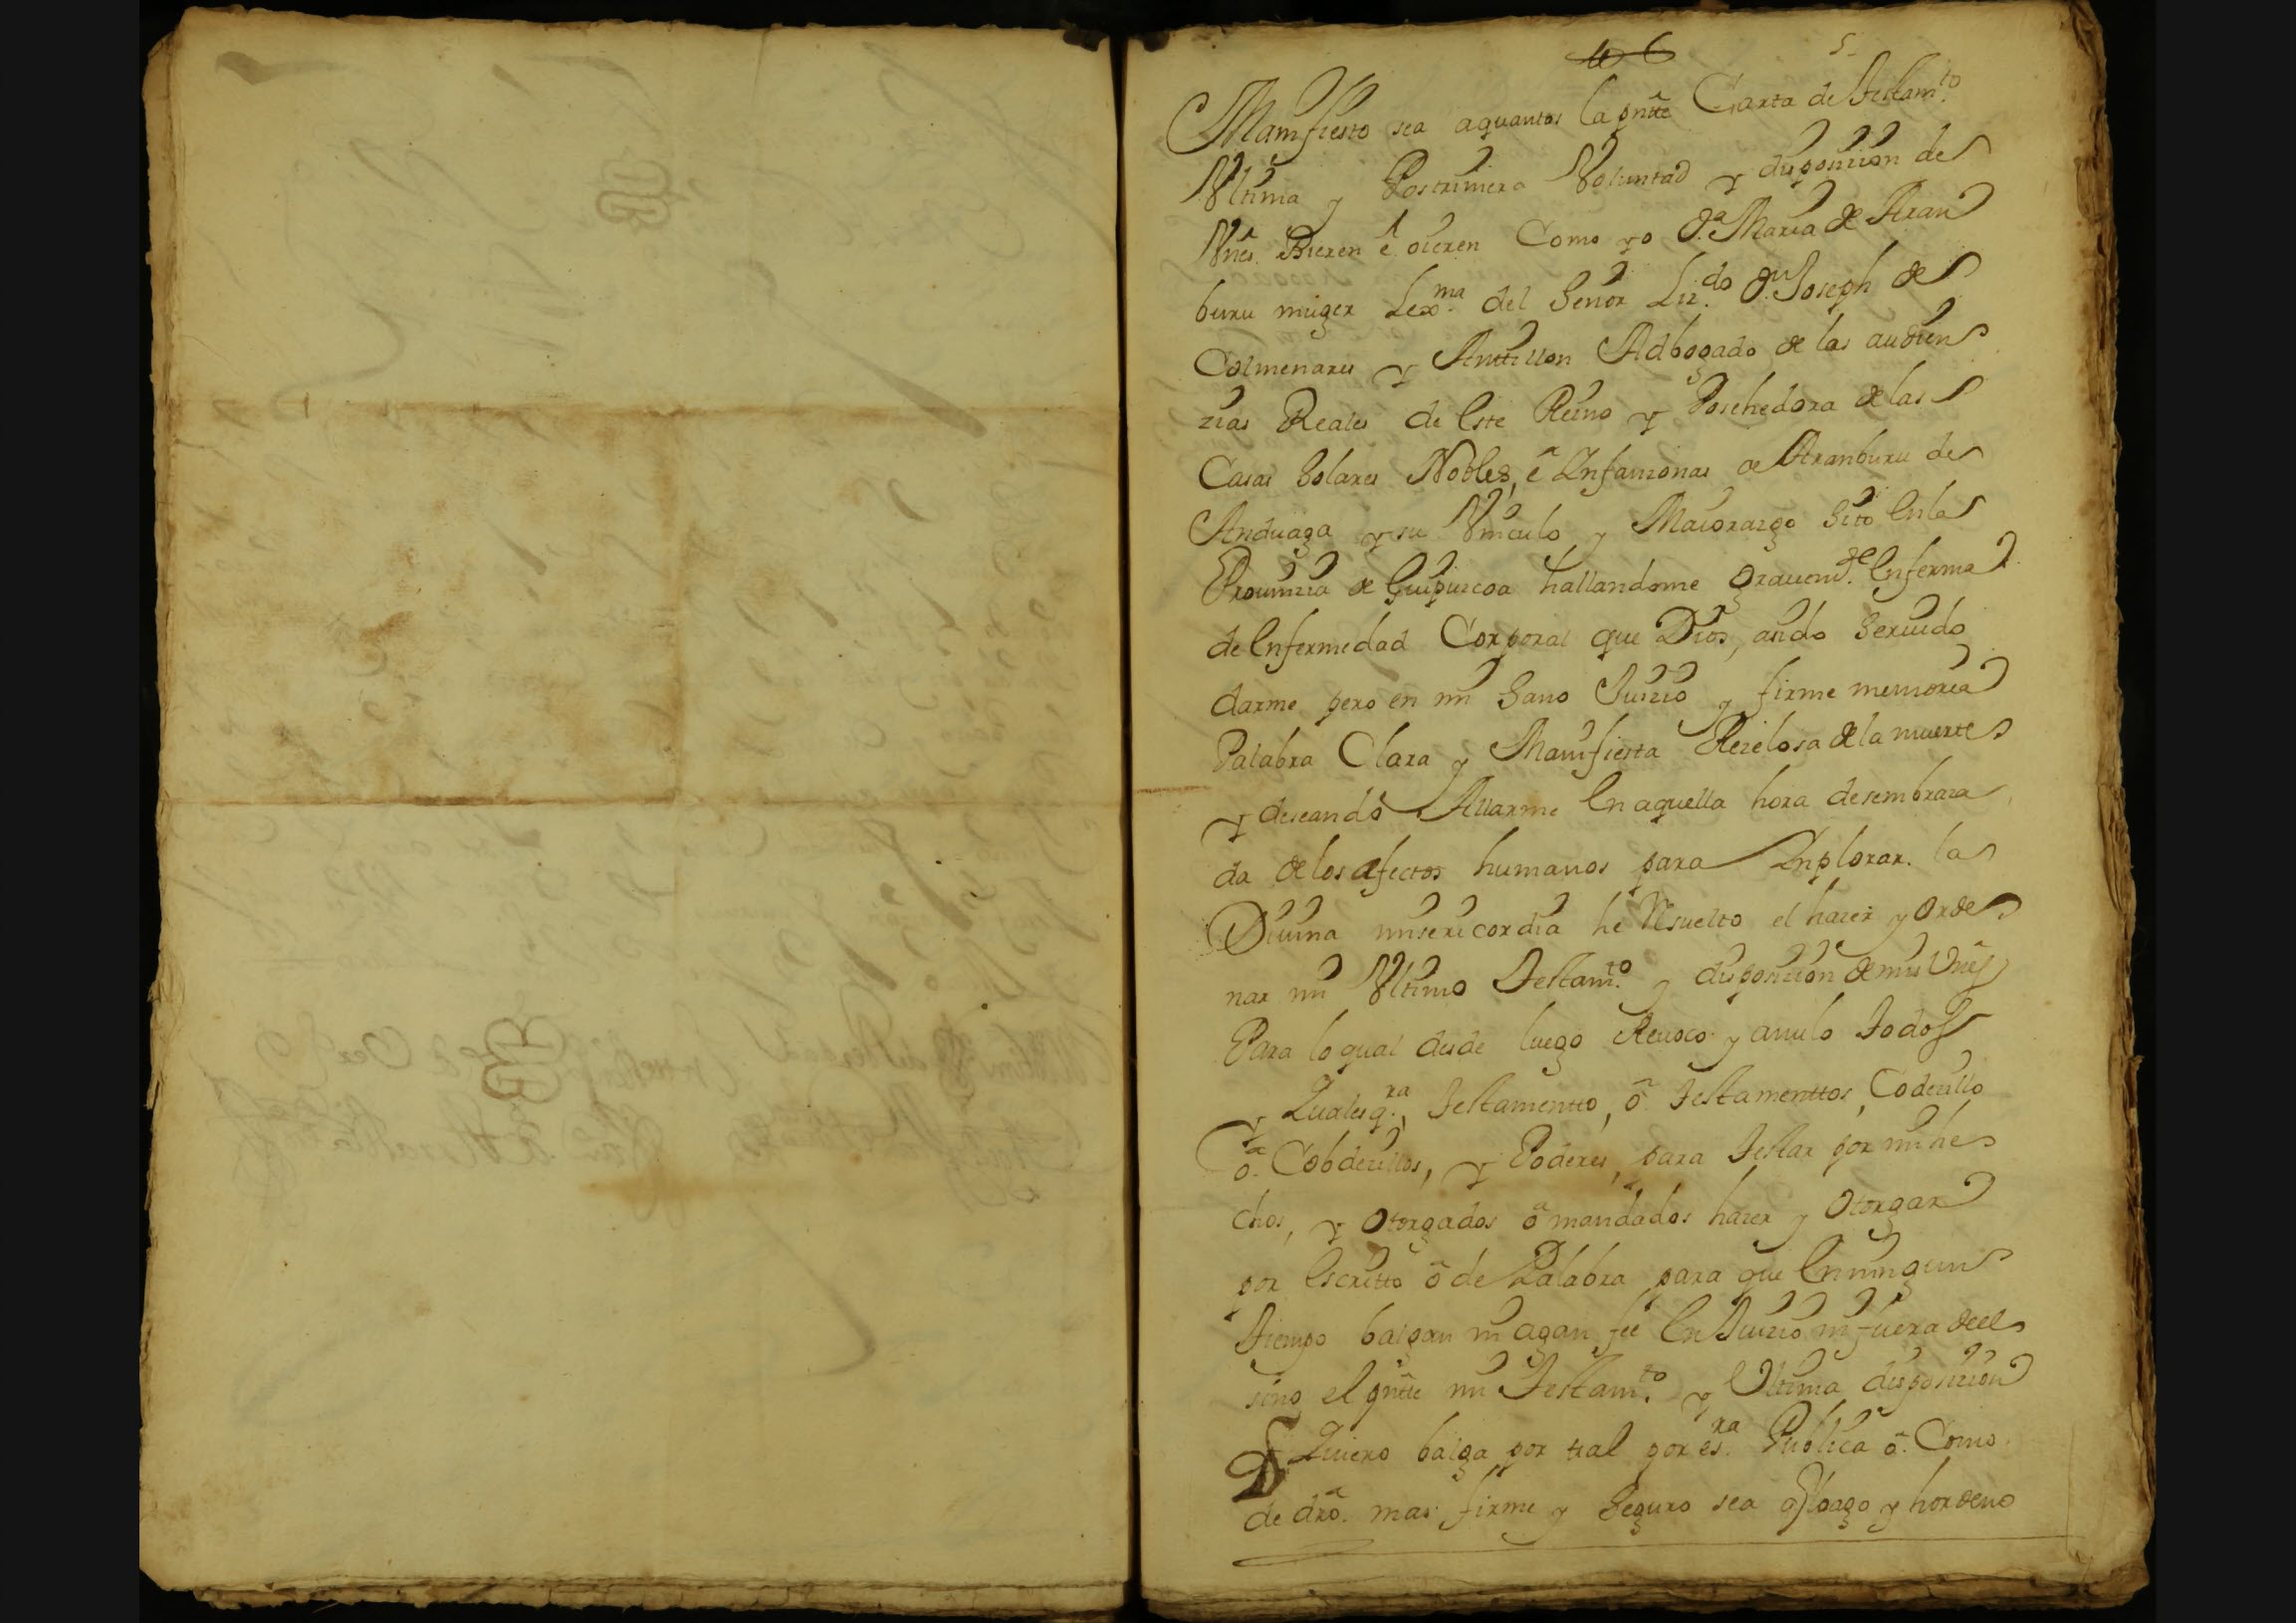 6 5
Manifiesto sea aquantos la pnte Carta de Testam.to
Vltima y Postrimera Voluntad y disposizion de
Vnes. Bieren ê oieren Como yo D.a Maria de Aran
buru muger Lex.ma del Señor Liz.do D.n Joseph de
Colmenares y Anttillon Adbogado de las audien
zias Reales de Este Reino y Posehedora de las
Casas Solares Nobles, ê Infanzonas de Aranburu de
Anduaga y su Vinculo y Maiorazgo Sito En la
Prouinzia de Guipuzcoa hallandome grauem.te Enferma
de Enfermedad Corporal que Dios, a sido Seruido
darme pero en mi Sano Juizio y firme memoria
Palabra Clara y Manifiesta Rezelosa de la muerte
y deseando Allarme En aquella hora desembraza
da de los afectos humanos para Inplorar. la
Diuina misericordia he Resuelto el hazer y Orde
nar mi Vltimo Testam.to y disposizion de mis Vnes
Para lo qual desde luego Reuoco y anulo Todos
y Qualesq.ra, Testamentto, ô Testamenttos, Codezillo
ô. Cobdezillos, y Poderes, para Testar por mi he
chos, y Otorgados ô mandados hazer y Otorgar
por Escritto ô de Palabra para que En ningun
Tiempo balgan ni agan fee En Juizio ni fuera de el
sino el pnte mi Testam.to y Vltima disposizion
Quiero balga por tal por es.ra Publica ô. Como
de dro. mas firme y Seguro sea otorgo y hordeno